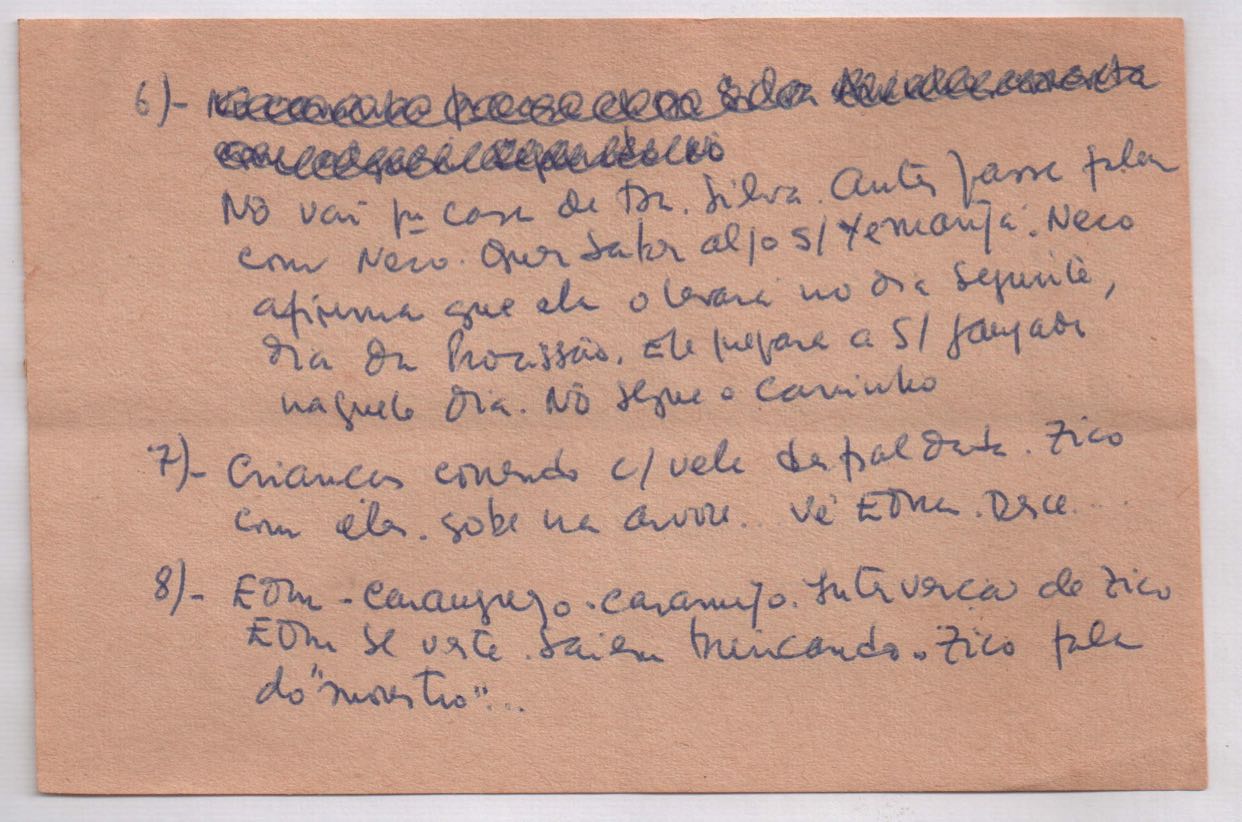 6)-
Nô vai pª casa de Dr. Silva. Antes passe fala
com Neco. Quer saber algo s/ Yemanjá. Neco
afirma que ela o levará no dia seguinte,
dia da Procissão. Ele prepara a s/ jangada
naquele dia. Nô segue o caminho
7)- Crianças correndo c/ vela. Zico
com elas. sobe na arvore.. Vê EDna. Desce....
8)- EDna - caranguejo - caramujo. Interverção de Zico
EDna se veste. Saiem brincando. Zico fala
do "monstro"...